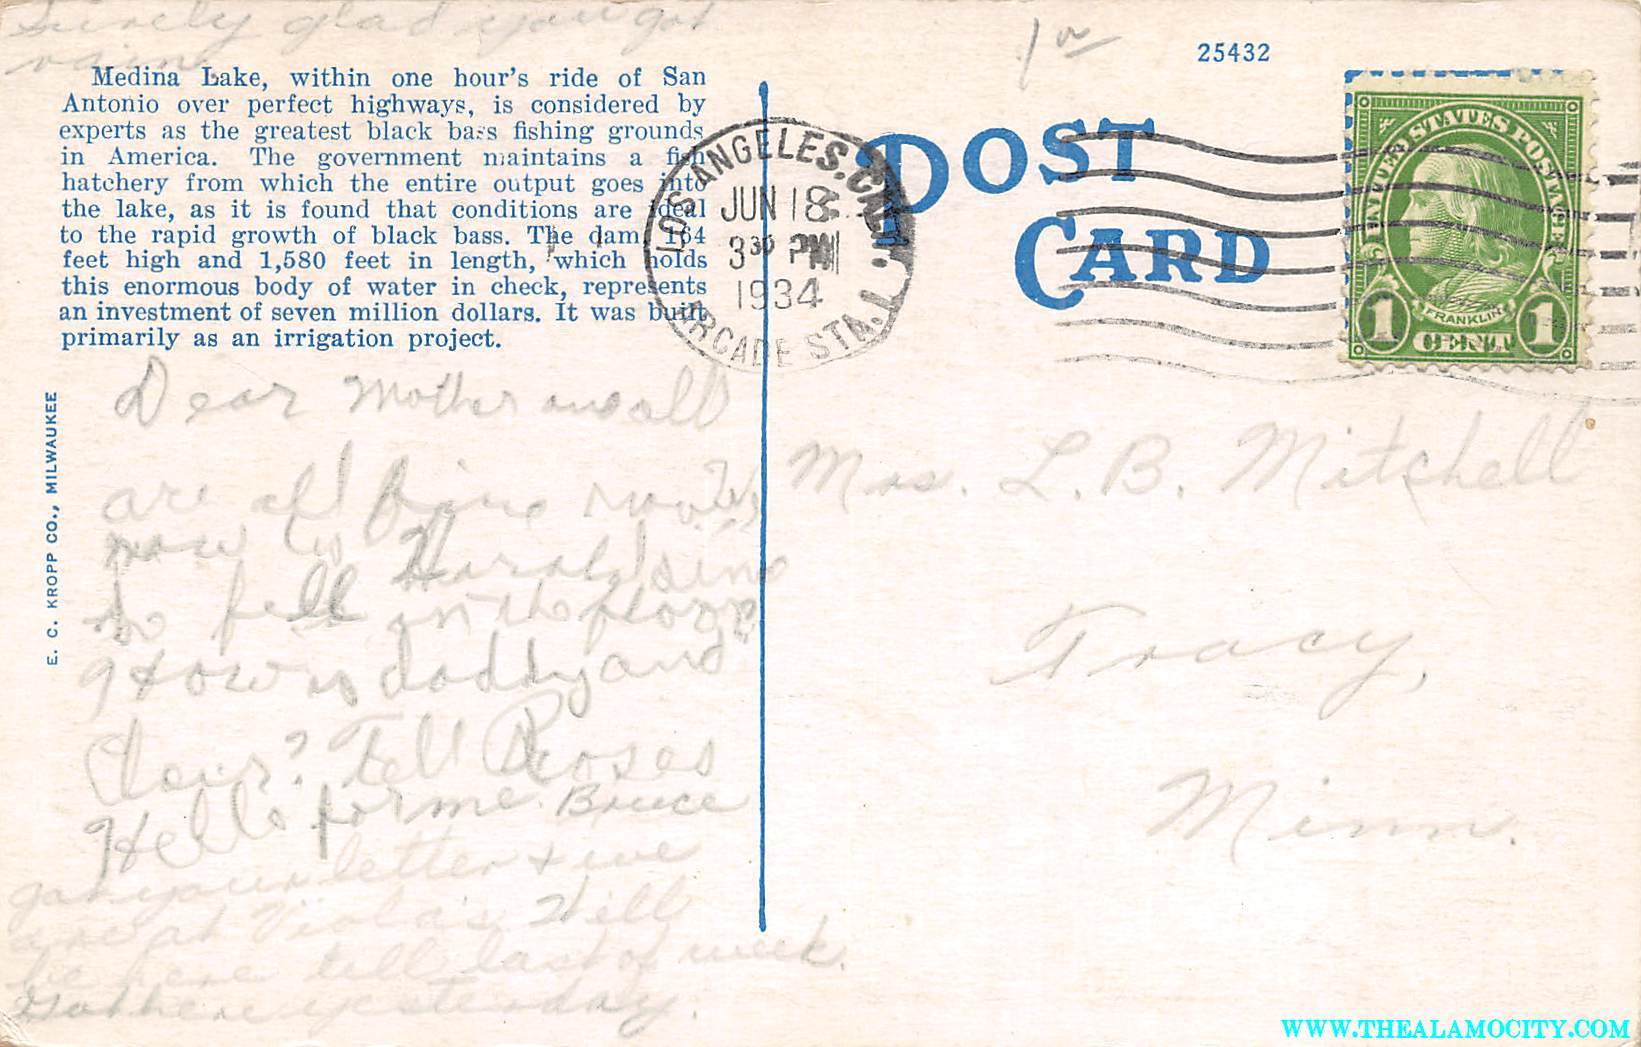 Surely glad you got
rain.
Medina Lake, within one hour's ride of San
Antonio over perfect highways, is considered by
experts as the greatest black bass fishing grounds
in America. The government maintains a fish
hatchery from which the entire output goes into
the lake, as it is found that conditions are ideal
to the rapid growth of black bass. The dam, 164
feet high and 1,580 feet in length, which holds
this enormous body of water in check, represents
an investment of seven million dollars. It was built
primarily as an irrigation project.
E. C. KROPP CO., MILWAUKEE
Dear Mother and all
are all fine
now Harold
fell in the
How is daddy and
Tell Roses
Hello for me. Bruce
Got your letter & we
are at Viola's. Will
be here till last of week.
Got here yesterday.
25432
POST
CARD
LOS ANGELES, CALIF.
JUN 18
3 30 PM
1934
ARCADE STA. 1
UNITED STATES POSTAGE
FRANKLIN
1 CENT 1
Mrs. L. B. Mitchell
Tracy,
Minn.
WWW.THEALAMOCITY.COM